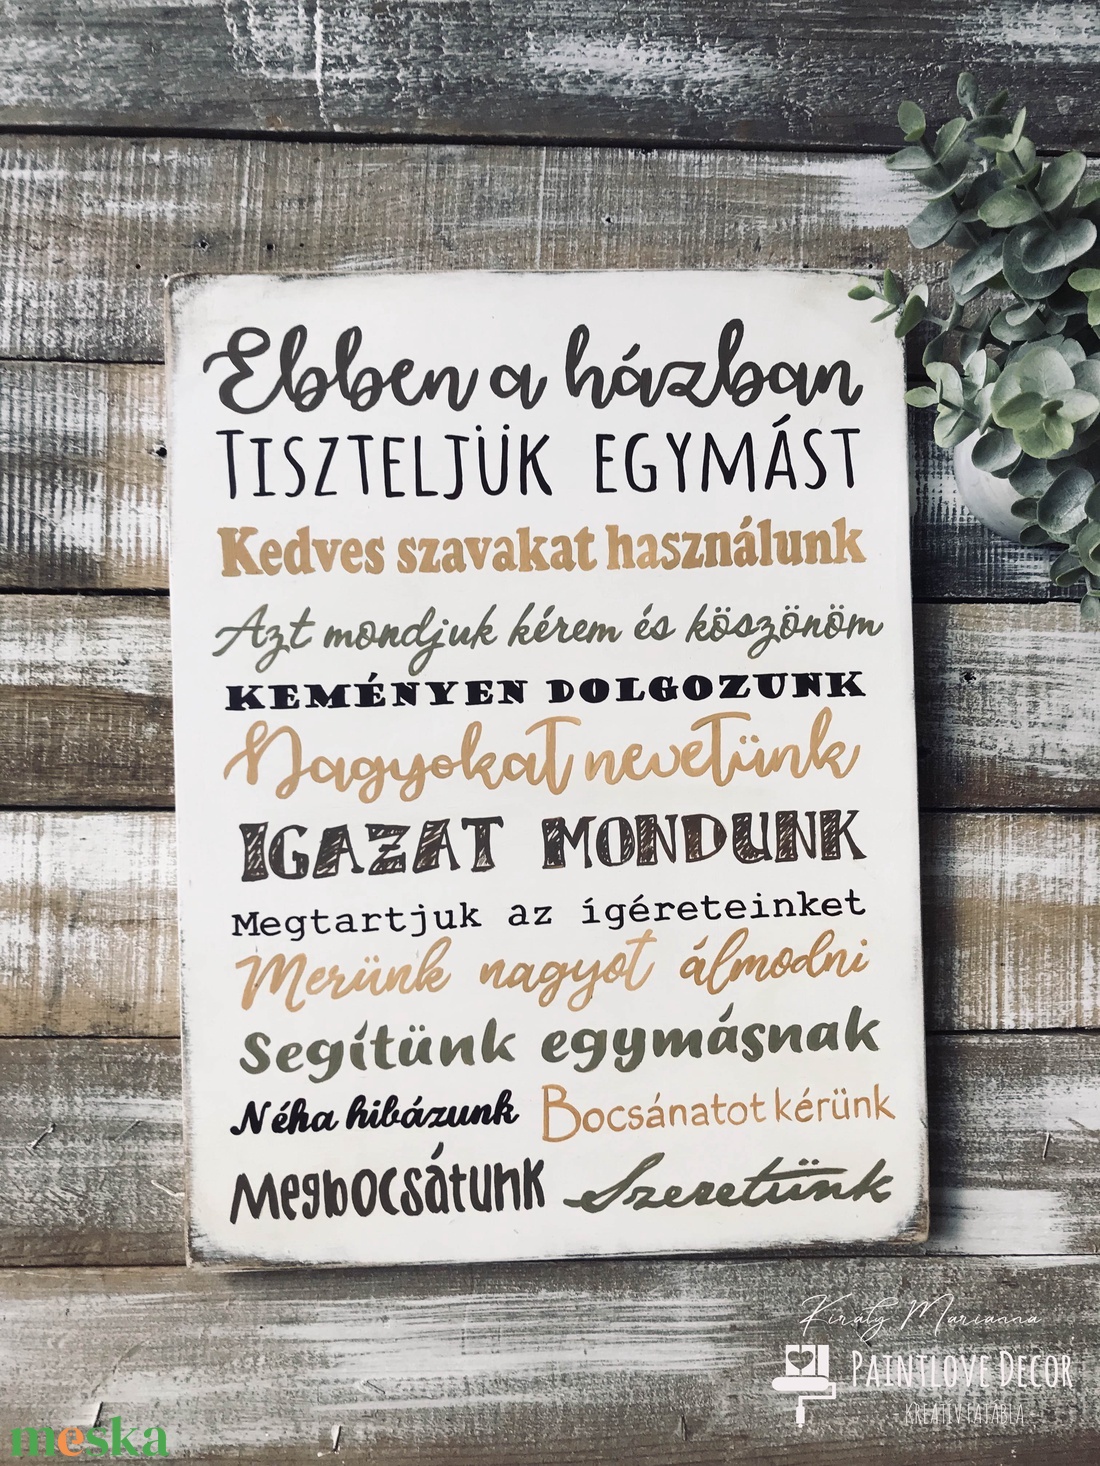 Ebben a házban
TISZTELJÜK EGYMÁST
Kedves szavakat használunk
Azt mondjuk kérem és köszönöm
KEMÉNYEN DOLGOZUNK
Nagyokat nevetünk
IGAZAT MONDUNK
Megtartjuk az ígéreteinket
Merünk nagyot álmodni
Segítünk egymásnak
Néha hibázunk Bocsánatot kérünk
Megbocsátunk Szeretünk
Király Marianna
PAINTLOVE DECOR
KREATÍV FATÁBLA
meska